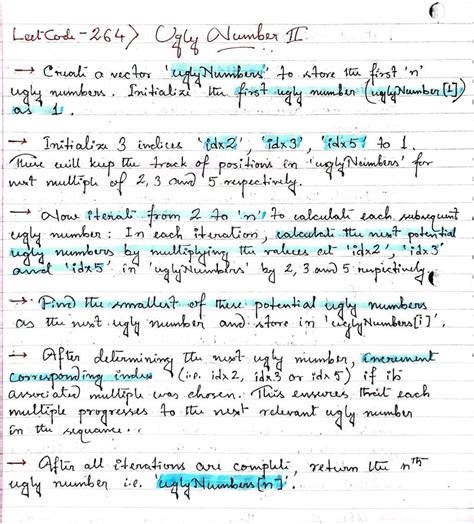 LeetCode-264> Ugly Number II
→ Create a vector 'uglyNumbers' to store the first 'n'
ugly numbers. Initialize the first ugly number (uglyNumber[1])
as 1.
→ Initialize 3 indices 'idx2', 'idx3', 'idx5' to 1.
These will keep the track of positions in 'uglyNumbers' for
next multiple of 2, 3 and 5 respectively.
→ Now iterate from 2 to 'n' to calculate each subsequent
ugly number: In each iteration, calculate the next potential
ugly numbers by multiplying the values at 'idx2', 'idx3'
and 'idx5' in 'uglyNumbers' by 2, 3 and 5 respectively.
→ Find the smallest of these potential ugly numbers
as the next ugly number and store in 'uglyNumbers[i]'.
→ After determining the next ugly number, increment
corresponding index (i.e. idx2, idx3 or idx5) if its
associated multiple was chosen. This ensures that each
multiple progresses to the next relevant ugly number
in the sequence.
→ After all iterations are complete, return the nth
ugly number i.e. 'uglyNumbers[n]'.